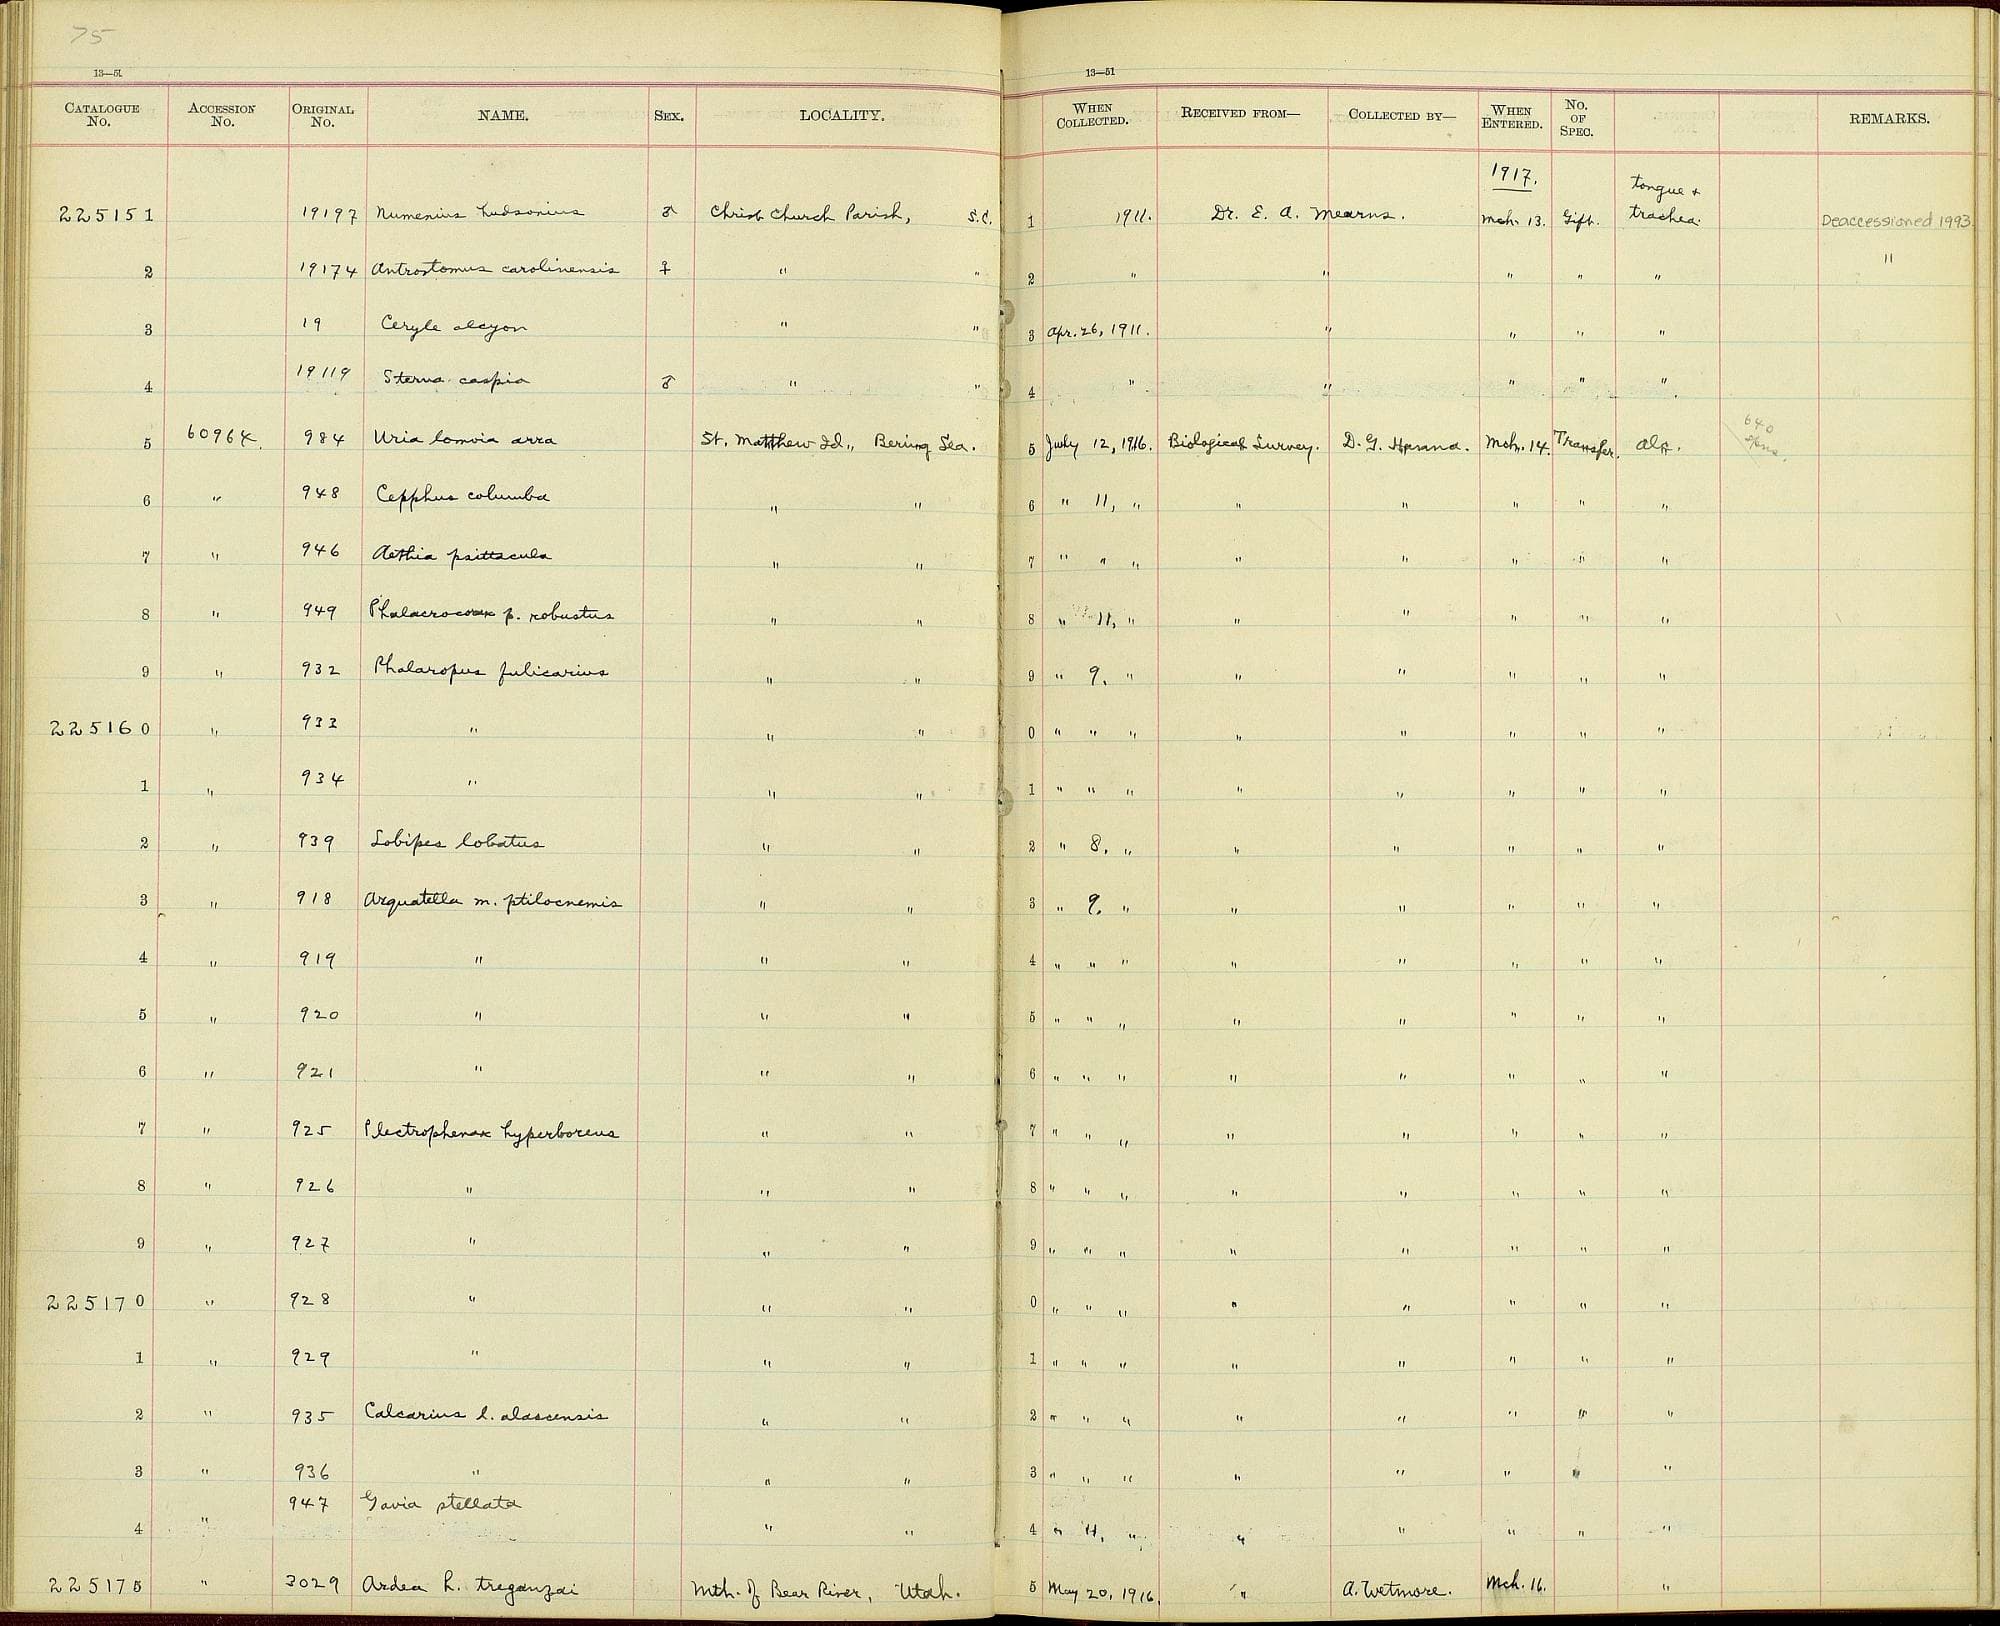 75
13—51
13—51
CATALOGUE No. ACCESSION No. ORIGINAL No. NAME. SEX. LOCALITY. WHEN COLLECTED. RECEIVED FROM— COLLECTED BY— WHEN ENTERED. No. OF SPEC. REMARKS.
1917.
225151 19197 Numenius hudsonius ♂ Christ Church Parish, S.C. 1 1911. Dr. E. A. Mearns. Mch. 13. Gift. tongue + trachea. Deaccessioned 1993
2 19174 Antrostomus carolinensis ♀ " " 2 " " " " " "
3 19 Ceryle alcyon " " 3 Apr. 26, 1911. " " " "
4 19119 Sterna caspia ♂ " " 4 " " " " "
5 60964. 984 Uria lomvia arra St. Matthew Id., Bering Sea. 5 July 12, 1916. Biological Survey. D. G. Hanna. Mch. 14. Transfer. alc. 640
6 " 948 Cepphus columba " " 6 " 11, " " " " " "
7 " 946 Aethia psittacula " " 7 " " " " " " " "
8 " 949 Phalacrocorax p. robustus " " 8 " 11, " " " " " "
9 " 932 Phalaropus fulicarius " " 9 " 9. " " " " " "
225160 " 933 " " " 0 " " " " " " " "
1 " 934 " " " 1 " " " " " " " "
2 " 939 Lobipes lobatus " " 2 " 8. " " " " " "
3 " 918 Arquatella m. ptilocnemis " " 3 " 9. " " " " " "
4 " 919 " " " 4 " " " " " " " "
5 " 920 " " " 5 " " " " " " " "
6 " 921 " " " 6 " " " " " " " "
7 " 925 Plectrophenax hyperboreus " " 7 " " " " " " " "
8 " 926 " " " 8 " " " " " " " "
9 " 927 " " " 9 " " " " " " " "
225170 " 928 " " " 0 " " " " " " " "
1 " 929 " " " 1 " " " " " " " "
2 " 935 Calcarius l. alascensis " " 2 " " " " " " " "
3 " 936 " " " 3 " " " " " " " "
4 " 947 Gavia stellata " " 4 " 11, " " " " " "
225175 " 3029 Ardea h. treganzai Mth. of Bear River, Utah. 5 May 20, 1916. " A. Wetmore. Mch. 16. "